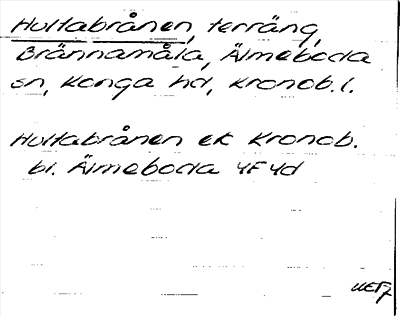 Hultabrånen, terräng,
Brännamåla, Älmeboda
sn, Konga hd, Kronob. l.
Hultabrånen ek Kronob.
bl. Älmeboda 4F4d